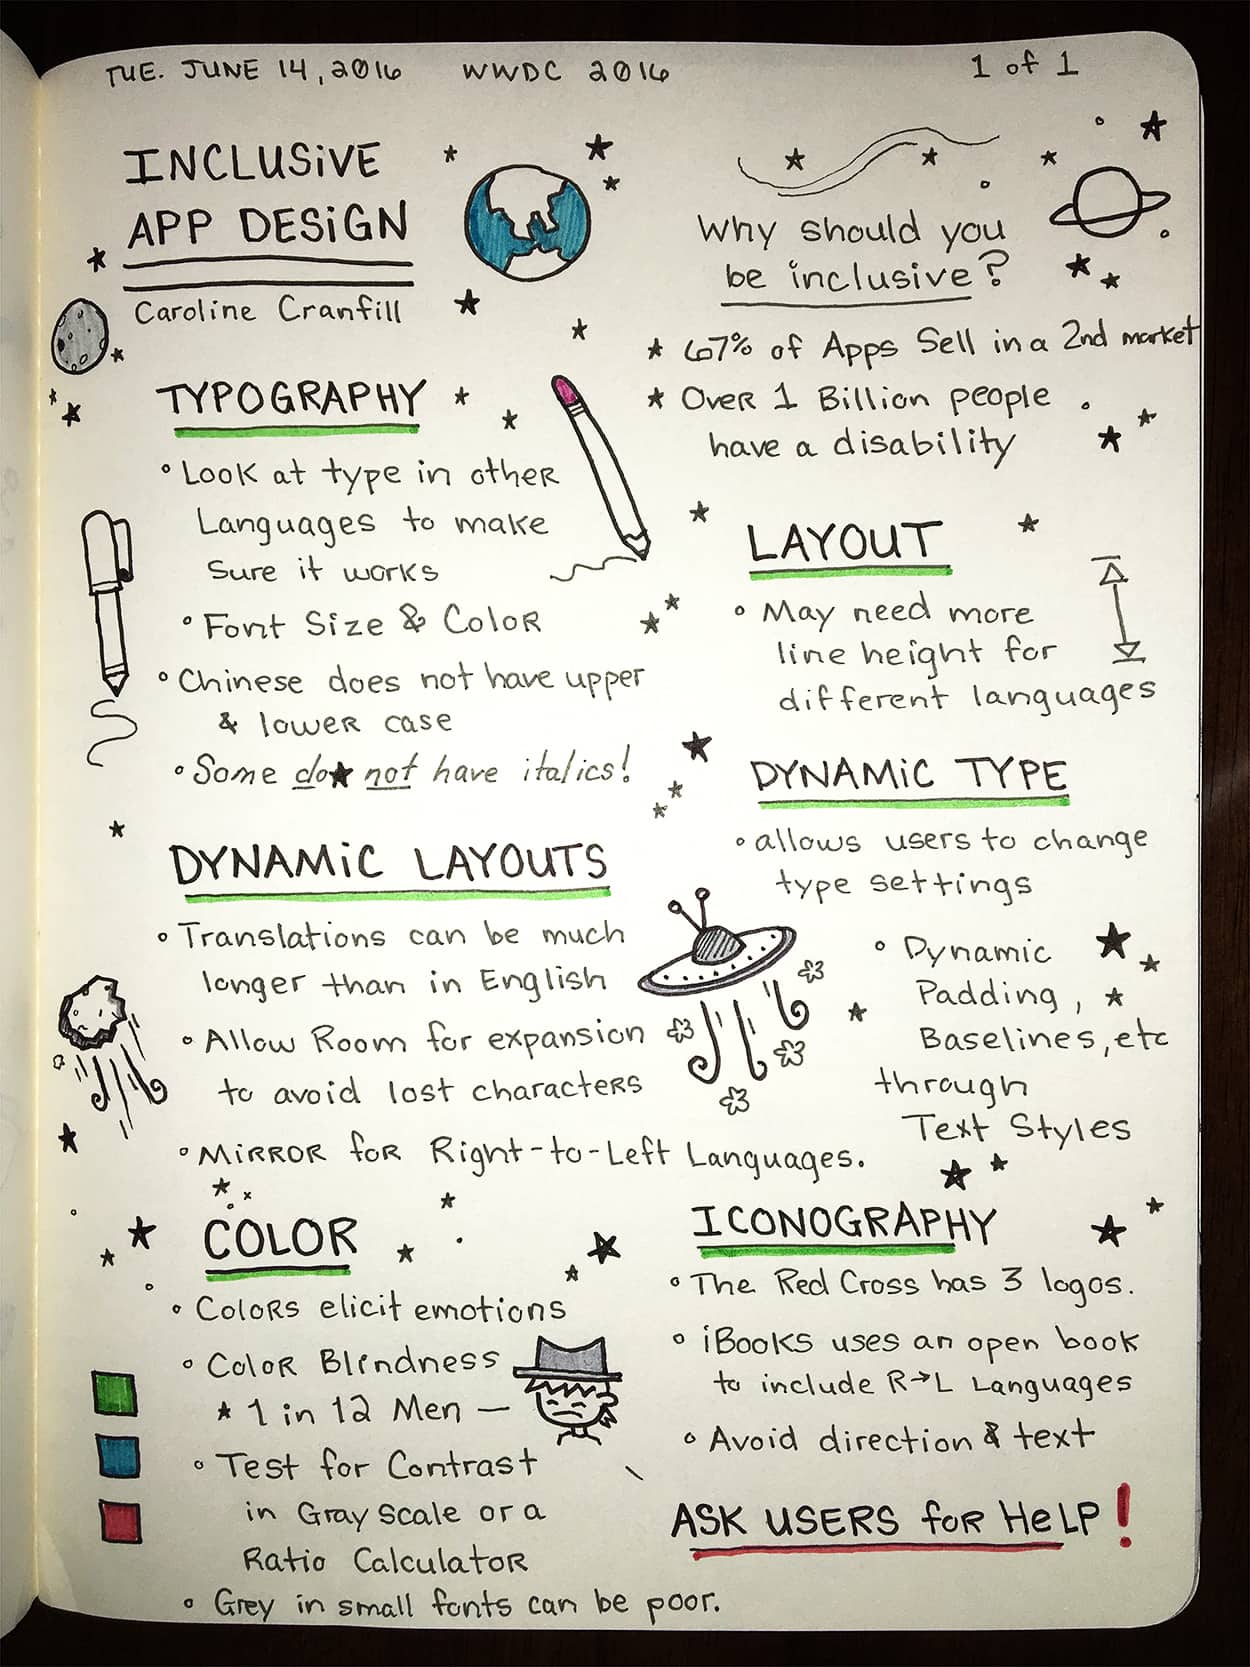 TUE. JUNE 14, 2016 WWDC 2016 1 of 1
INCLUSiVE
APP DESiGN
Caroline Cranfill
Why should you
be inclusive?
★ 67% of Apps Sell in a 2nd market
★ Over 1 Billion people
have a disability
TYPOGRAPHY
° Look at type in other
Languages to make
Sure it works
° Font Size & Color
° Chinese does not have upper
& lower case
° Some do★ not have italics!
LAYOUT
° May need more
line height for
different languages
DYNAMiC LAYOUTS
° Translations can be much
longer than in English
° Allow Room for expansion
to avoid lost characters
° MiRROR for Right-to-Left Languages.
DYNAMiC TYPE
° allows users to change
type settings
° Dynamic
Padding,
Baselines, etc
through
Text Styles
COLOR
° Colors elicit emotions
° Color Blindness
★ 1 in 12 Men —
° Test for Contrast
in Gray Scale or a
Ratio Calculator
° Grey in small fonts can be poor.
ICONOGRAPHY
° The Red Cross has 3 logos.
° iBooks uses an open book
to include R→L Languages
° Avoid direction & text
ASK USERS foR HeLP!